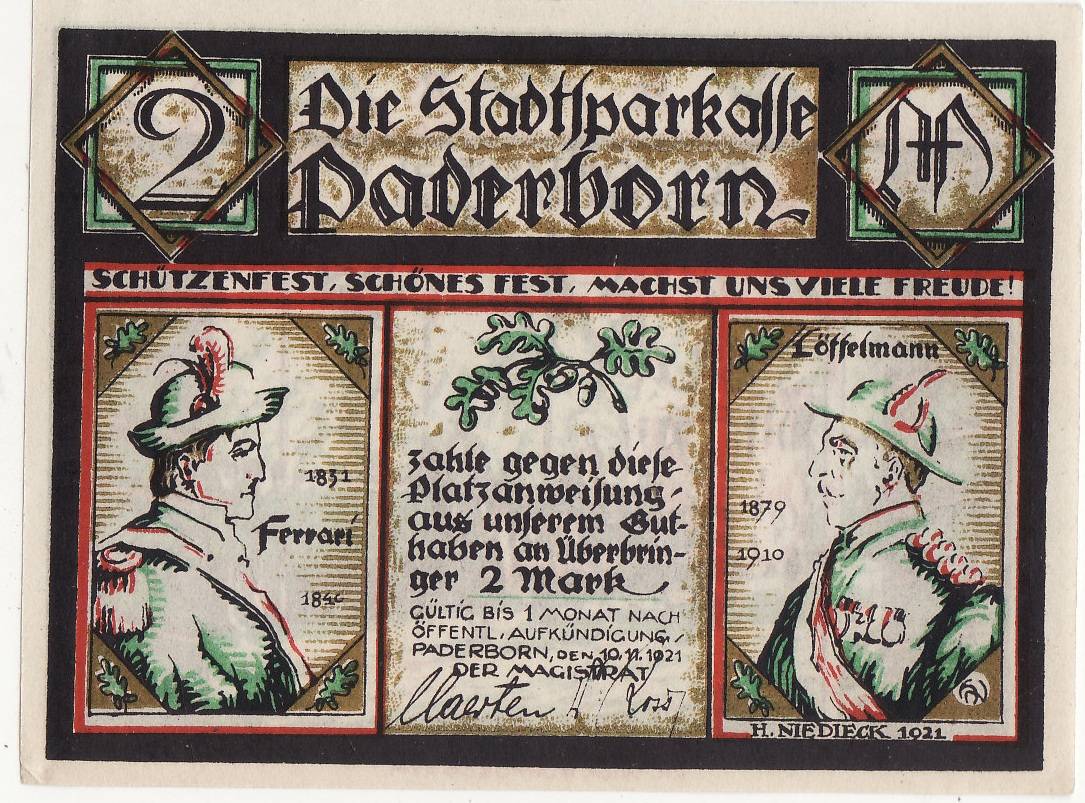 2
Die Stadtsparkasse
Paderborn
M
SCHÜTZENFEST, SCHÖNES FEST, MACHST UNS VIELE FREUDE!
1831
Ferrari
zahle gegen diese
Platzanweisung
aus unserem Gut-
haben an Überbrin-
ger 2 Mark
GÜLTIG BIS 1 MONAT NACH
ÖFFENTL. AUFKÜNDIGUNG,
PADERBORN, DEN 10.11.1921
DER MAGISTRAT
Löffelmann
1879
1910
H. NIEDIECK 1921